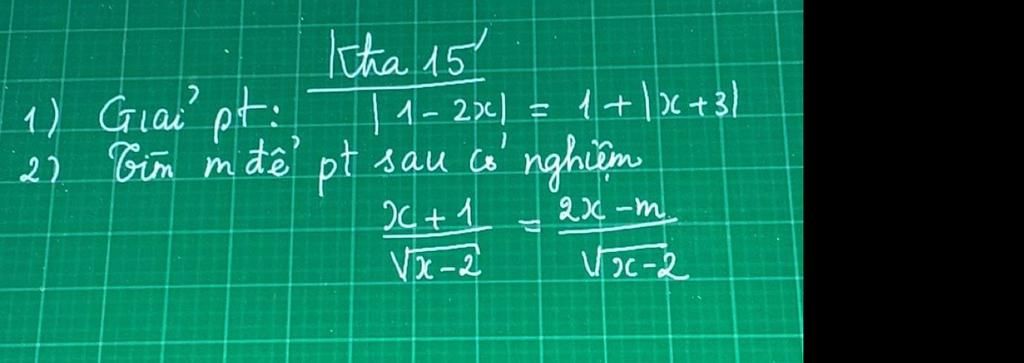 Ktra 15'
1) Giải pt: |1-2x| = 1+|x+3|
2) Tìm m để pt sau có nghiệm
x+1/√x-2 = 2x-m/√x-2